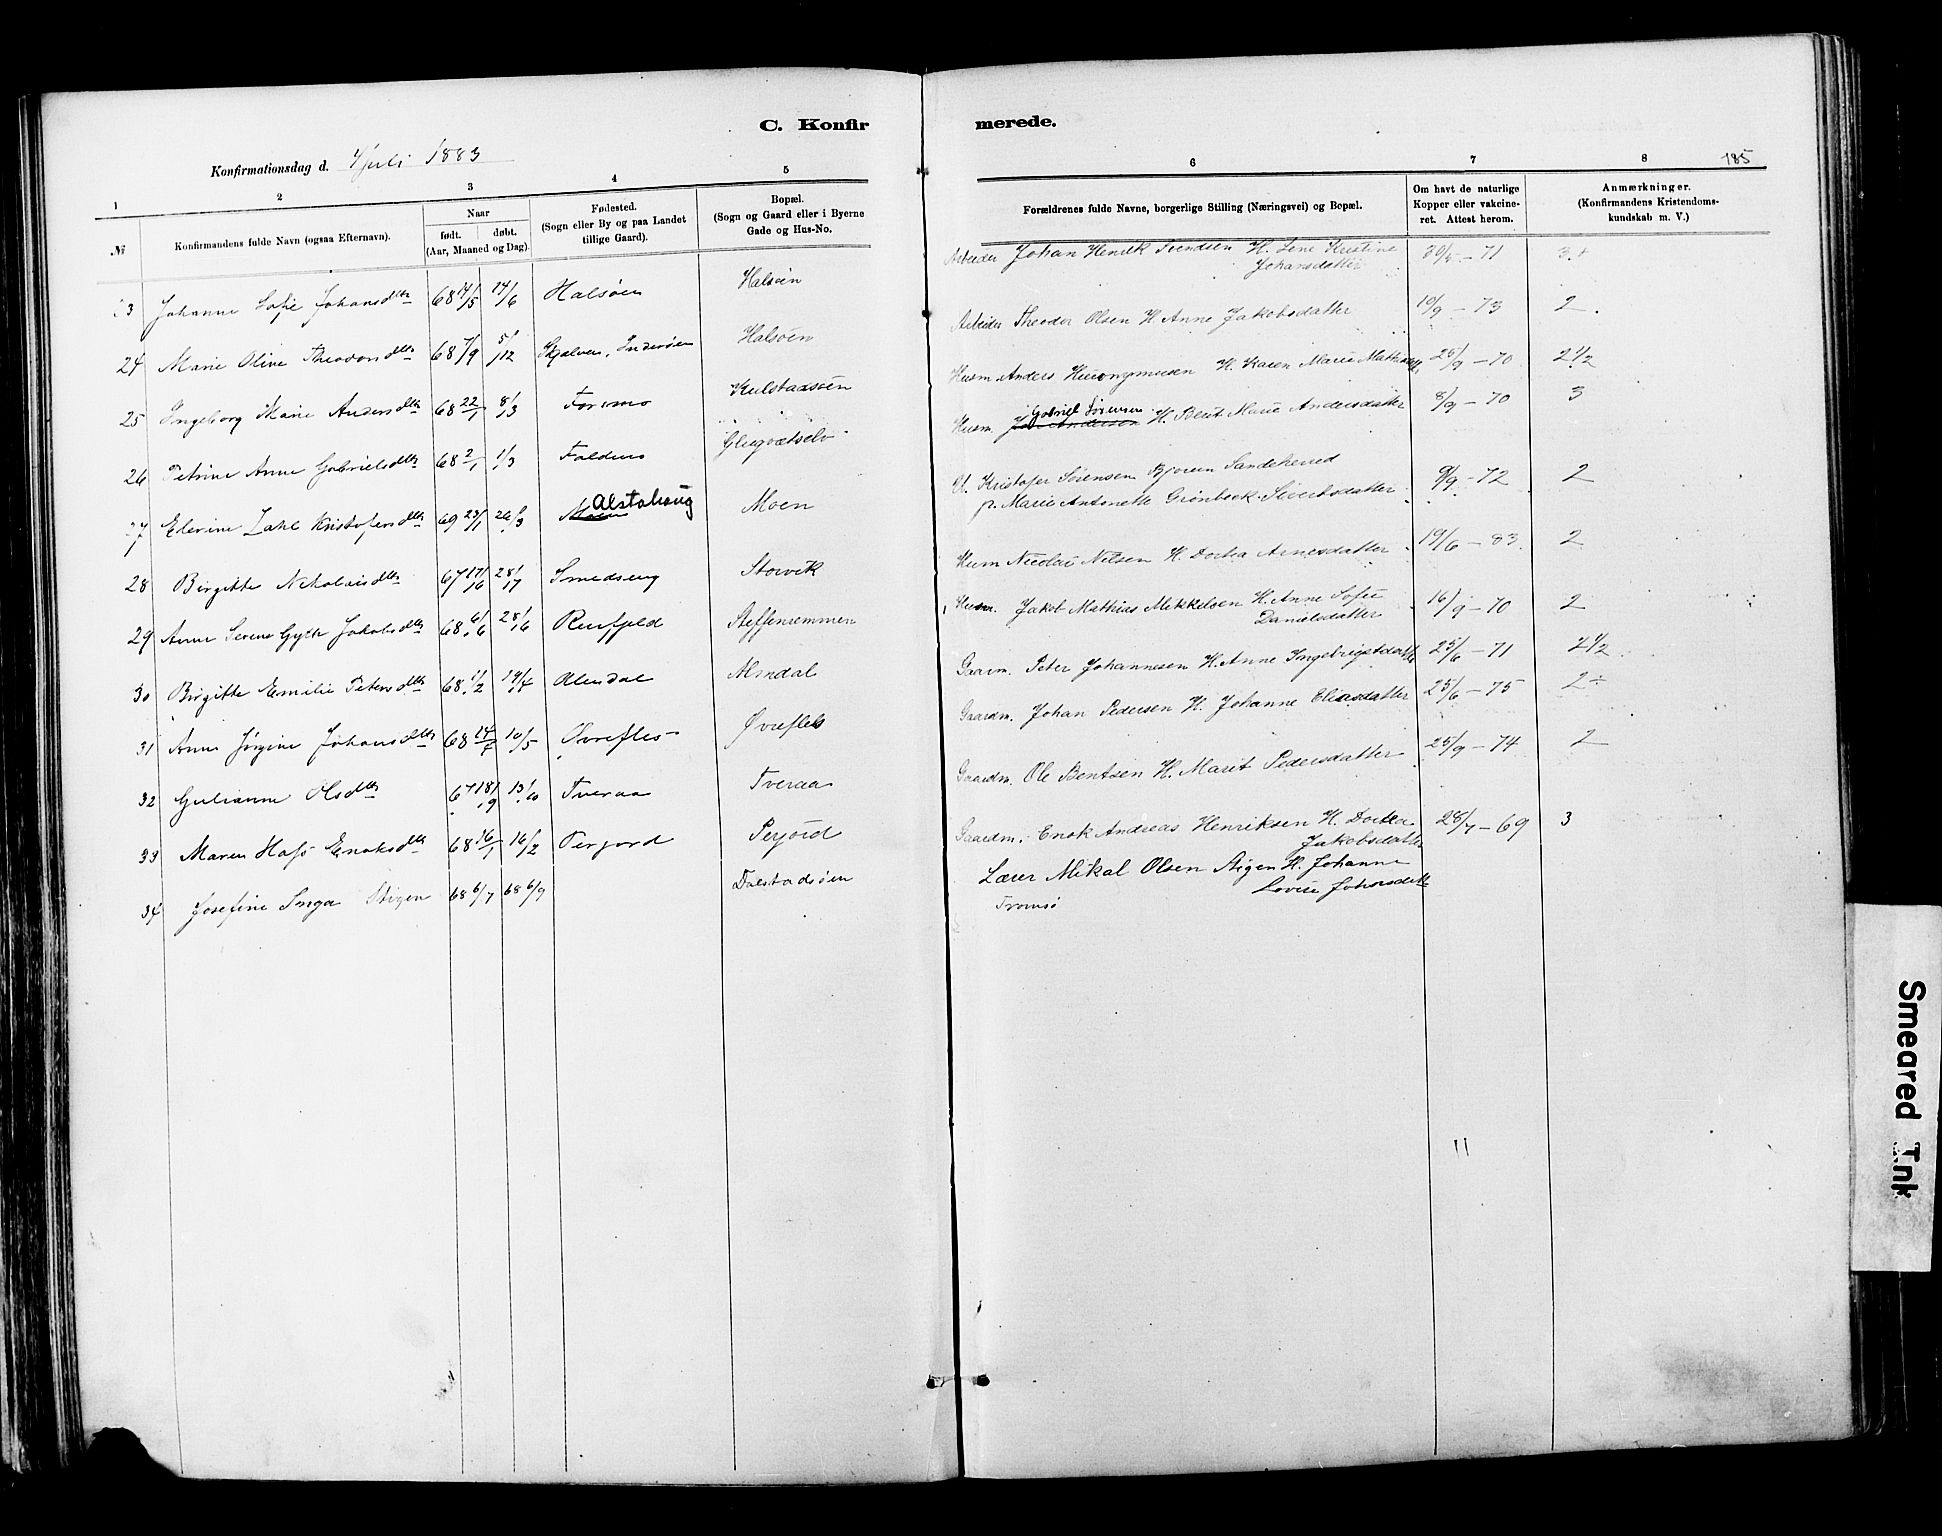 C. Konfirmerede.
185
Konfirmationsdag d. 1 Juli 1883
1 2 3 4 5 6 7 8
№
Konfirmandens fulde Navn (ogsaa Efternavn).
Naar
født. døbt.
(Aar, Maaned og Dag).
Fødested.
(Sogn eller By og paa Landet
tillige Gaard).
Bopæl.
(Sogn og Gaard eller i Byerne
Gade og Hus-No.
Forældrenes fulde Navne, borgerlige Stilling (Næringsvei) og Bopæl.
Om havt de naturlige
Kopper eller vakcine-
ret. Attest herom.
Anmærkninger.
(Konfirmandens Kristendoms-
kundskab m. V.)
3 Johanne Sofie Johansdtr 68 14/5 14/6 Halsøen Halsøen Arbeider Johan Henrik Svendsen H. Lene Kristine 30/5 - 71 3+
Johansdatter
24 Marie Oline Theodorsdtr 68 7/9 5/12 Skjalven, Inderøen Halsøen Arbeider Theodor Olsen H. Anne Jakobsdatter 10/9 - 73 2.
25 Ingeborg Marie Andersdtr 68 22/1 8/3 Forsmo Kulstadsøen Husm Anders Hieronymusen H. Karen Marie Mathisdtr 25/9 - 70 2 1/2
26 Petrine Anne Gabrielsdtr 68 2/1 1/3 Faldmo Glugvatselv Husm. Gabriel Sørensen H. Berit Marie Andersdatter 8/9 - 70 3
27 Elevine Zahl Kristofersdtr 69 23/1 26/3 Moen Alstahoug Moen U. Kristofer Sørensen Bjoreen Sandehered 9/9 - 72 2
p. Marie Antonette Grønbeck Sivertsdatter
28 Birgitte Nikolaisdtr 67 17/6 28/7 Smedseng Storvik Husm Nicolai Nilsen H. Dortea Arnesdatter 19/6 - 83 2
29 Anne Serene Gytte Jakobsdtr 68 6/6 28/6 Reinfjeld Steffenremmen Husm. Jakob Mathias Mikkelsen H. Anne Sofie 16/9 - 70 2
Danielsdatter
30 Birgitte Emilie Petersdtr 68 1/2 19/4 Almdal Almdal Gaardm. Peter Johannesen H. Anne Ingebrigtsdatter 25/6 - 71 2 1/2
31 Anne Jørgine Johansdtr 68 14/4 10/5 Øvrefles Øvrefles Gaardm. Johan Pedersen H. Johanne Eliasdatter 25/6 - 75 2 ÷
32 Gulianne Olsdtr 67 18/9 13/10 Tveraa Tveraa Gaardm. Ole Bentsen H. Marit Pedersdatter 25/9 - 74 2
33 Maren Hafs Enoksdtr 68 16/1 16/2 Perjord Perjord Gaardm. Enok Andreas Henriksen H. Dortea 28/7 - 69 3
Jakobsdatter
34 Josefine Inga Stigen 68 6/7 68 6/9 Dalstadsøen Lærer Mikal Olsen Stigen H. Johanne
Lovise Johansdtr
Tromsø
Smeared Ink